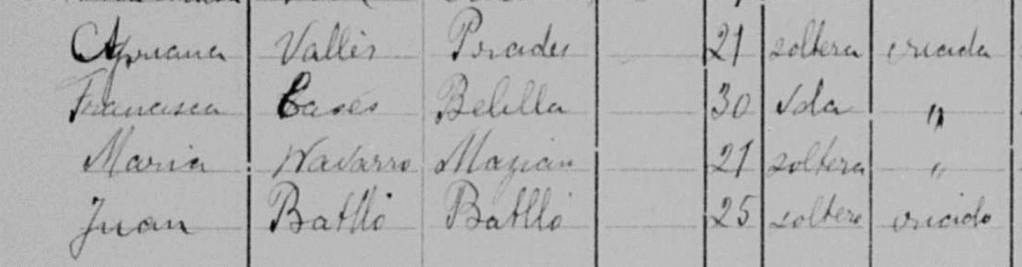 Cipriana Vallés Prades 21 soltera criada
Francisca Casés Belilla 30 Vda "
Maria Navarro Mazian 21 soltera "
Juan Batlló Batlló 25 soltero criado